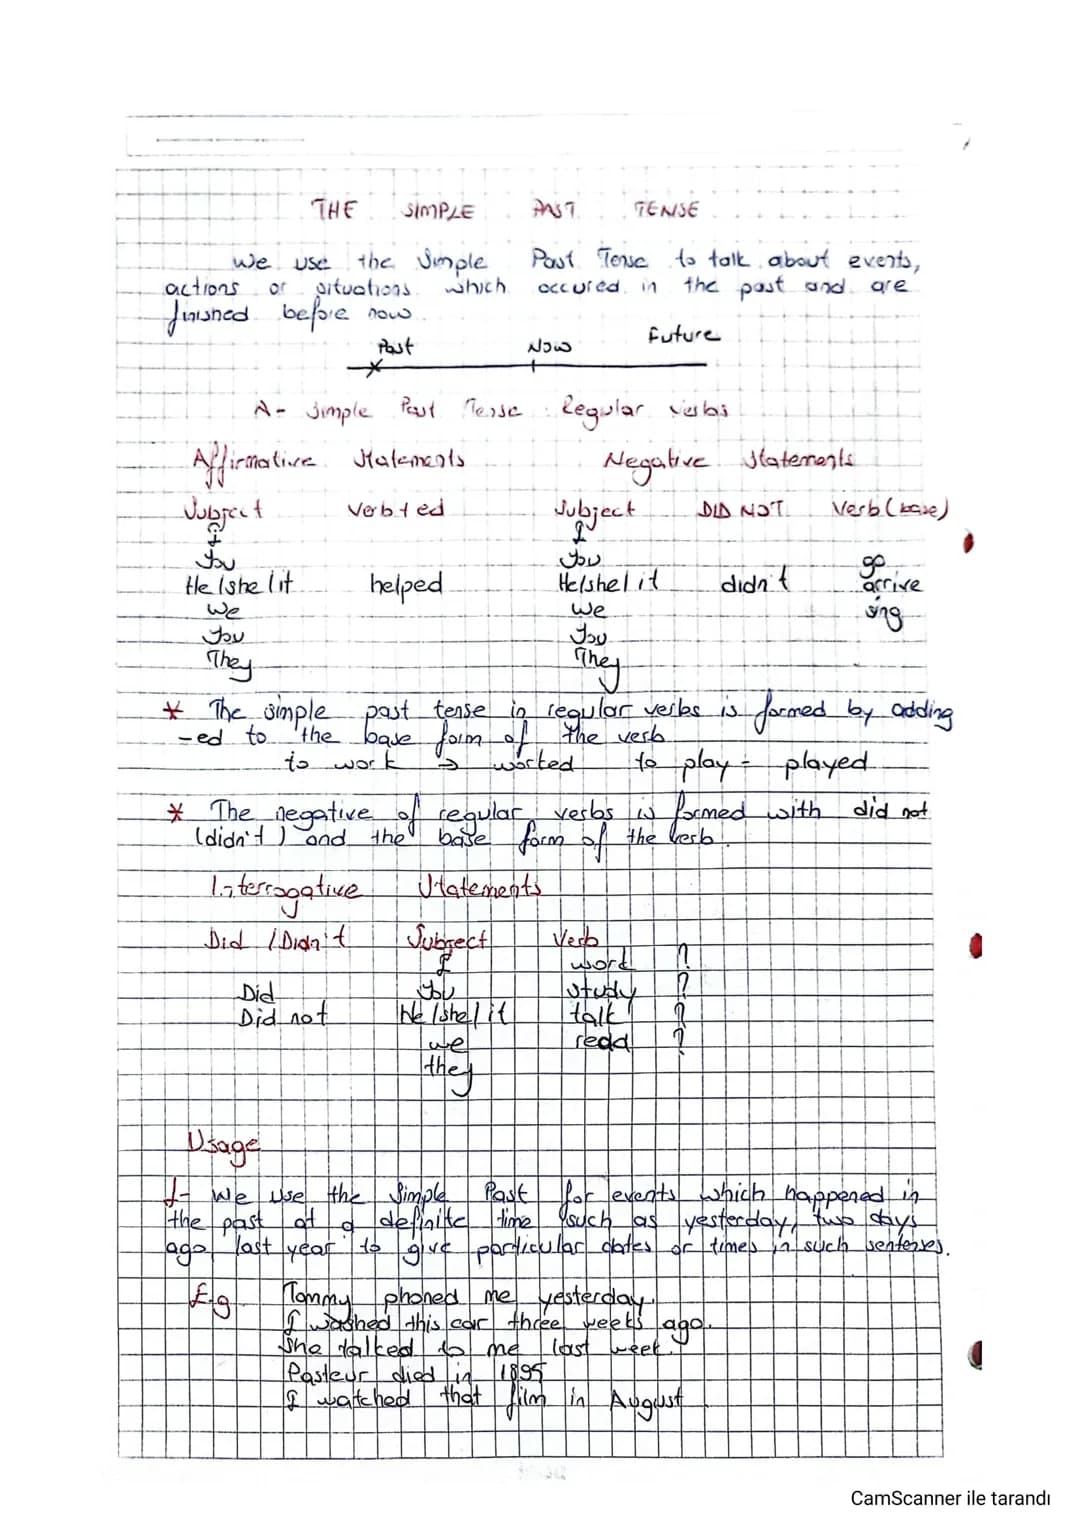 THE SIMPLE PAST TENSE
We use the Simple Past Tense to talk about events,
actions or situations which occured in the past and are
finished before now
Past Now Future
A- Simple Past Tense Regular verbs
Affirmative Statements Negative Statements
Subject Verb+ed Subject DID NOT Verb (base)
I I
You You go
He/she/it helped He/she/it didn't arrive
We We sing
You You
They They
* The simple past tense in regular verbs is formed by adding
-ed to the base form of the verb
to work → worked to play = played
* The negative of regular verbs is formed with did not
(didn't) and the base form of the verb.
Interrogative Statements
Did / Didn't Subject Verb
I word ?
Did You study ?
Did not He/she/it talk ?
we redd ?
they
Usage
1- We use the Simple Past for events which happened in
the past at a definite time such as yesterday, two days
ago, last year to give particular dates or times in such sentenses.
E.g Tommy phoned me yesterday.
I washed this car three weeks ago.
She talked to me last week.
Pasteur died in 1895
I watched that film in August
CamScanner ile tarandı